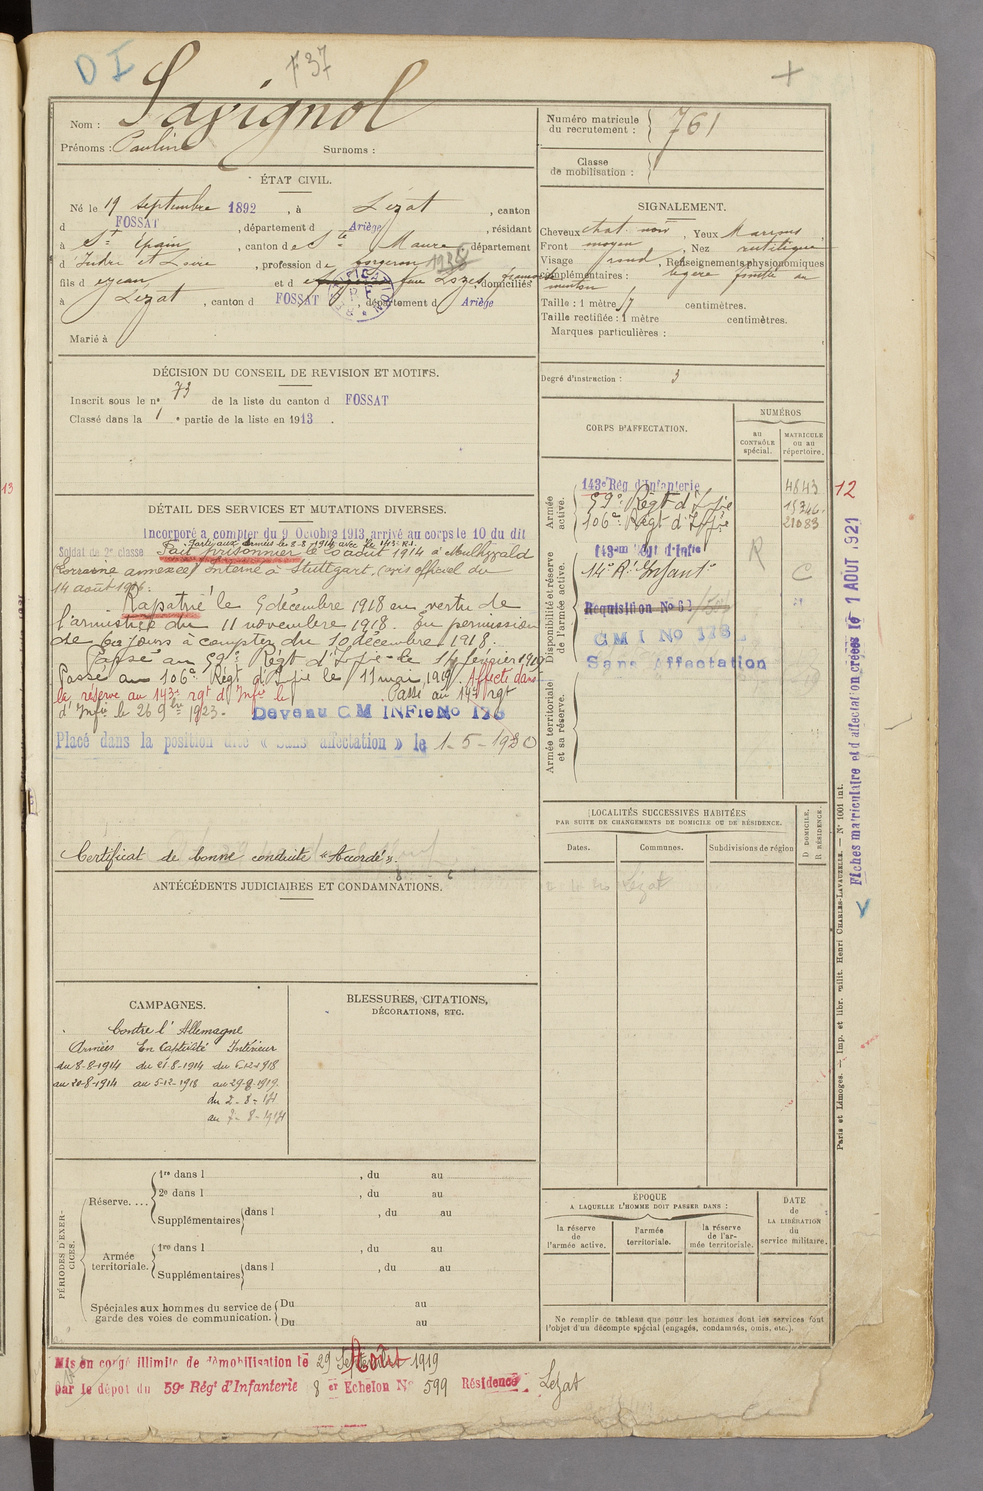 D I
F 37
+
Nom : Savignol
Prénoms : Paulin Surnoms :
Numéro matricule du recrutement : 761
Classe de mobilisation :
ÉTAT CIVIL.
Né le 19 septembre 1892, à Lézat, canton
d FOSSAT, département d Ariège, résidant
à St Épain, canton de Ste Maure, département
d'Indre et Loire, profession de forgeron
fils d ejean et d feue domiciliés
à Lézat, canton d FOSSAT, département d Ariège
Marié à
SIGNALEMENT.
Cheveux chat. noir, Yeux Marrons
Front moyen, Nez rectiligne
Visage rond, Renseignements physionomiques
complémentaires : légère au
menton
Taille : 1 mètre 57 centimètres.
Taille rectifiée : 1 mètre centimètres.
Marques particulières :
Degré d'instruction : 3
DÉCISION DU CONSEIL DE REVISION ET MOTIFS.
Inscrit sous le n° 73 de la liste du canton d FOSSAT
Classé dans la 1e partie de la liste en 1913.
DÉTAIL DES SERVICES ET MUTATIONS DIVERSES.
Incorporé a compter du 9 Octobre 1913 arrivé au corps le 10 du dit
Parti aux armées le 8-8-1914 avec le 143e R.I.
Soldat de 2e classe Fait prisonnier le août 1914 à
Lorraine annexée interné à Stuttgart, (avis officiel du
14 août 1916.
Rapatrié le 5 décembre 1918 en vertu de
l'armistice du 11 novembre 1918. En permission
de 60 jours à compter du 10 décembre 1918.
Passé au 59e Régt d'Infie le 14 février 1919
Passé au 106e Régt d'Infie le 11 mai 1919. Affecté dans
la réserve au 143e rgt d'Infie le Passé au 14e rgt
d'Infie le 26 9bre 1923. Devenu C M INFie No 178
Placé dans la position dite « Sans affectation » le 1-5-1930
Certificat de bonne conduite « Accordé ».
CORPS D'AFFECTATION.
NUMÉROS
au CONTRÔLE spécial.
MATRICULE ou au répertoire.
Armée active.
143e Rég d'Infanterie 4843
59e Régt d'Infie 15346
106e Régt d'Infie 21083
Disponibilité et réserve de l'armée active.
143eme Rgt d'Infie R
14e Ri Infant C
Réquisition No 61
C M I No 178
Sans Affectation
Armée territoriale et sa réserve.
12
13
Fiches matriculaire et d'affectation créées le 1 AOUT 1921
ANTÉCÉDENTS JUDICIAIRES ET CONDAMNATIONS.
LOCALITÉS SUCCESSIVES HABITÉES
PAR SUITE DE CHANGEMENTS DE DOMICILE OU DE RÉSIDENCE.
D DOMICILE. R RÉSIDENCE.
Dates. Communes. Subdivisions de région
Lézat
CAMPAGNES.
Contre l'Allemagne
Armées En Captivité Intérieur
du 8-8-1914 du 21-8-1914 du 6-12-1918
au 20-8-1914 au 5-12-1918 au 29-8-1919.
du 2-8-14
au 7-8-1914
BLESSURES, CITATIONS,
DÉCORATIONS, ETC.
PÉRIODES D'EXERCICES.
Réserve....
1re dans l , du au
2e dans l , du au
Supplémentaires dans l , du au
Armée territoriale.
1re dans l , du au
Supplémentaires dans l , du au
Spéciales aux hommes du service de garde des voies de communication.
Du au
Du au
ÉPOQUE
A LAQUELLE L'HOMME DOIT PASSER DANS :
la réserve de l'armée active.
l'armée territoriale.
la réserve de l'armée territoriale.
DATE de LA LIBÉRATION du service militaire.
Ne remplir ce tableau que pour les hommes dont les services font
l'objet d'un décompte spécial (engagés, condamnés, omis, etc.).
Paris et Limoges. — Imp. et libr. milit. Henri CHARLES-LAVAUZELLE. — N° 1001 int.
Mis en congé illimité de démobilisation le 29 Août 1919
par le dépôt du 59e Régt d'Infanterie 8 er Echelon No 599 Résidence Lezat